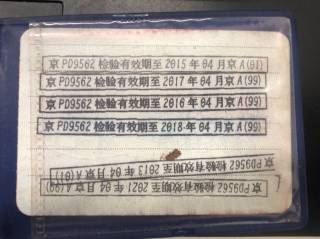 京PD9562检验有效期至2015年04月京A(01)
京PD9562检验有效期至2017年04月京A(99)
京PD9562检验有效期至2016年04月京A(99)
京PD9562检验有效期至2018年04月京A(99)
京PD9562检验有效期至2013年04月京A(01)
京PD9562检验有效期至2021年04月京A(99)